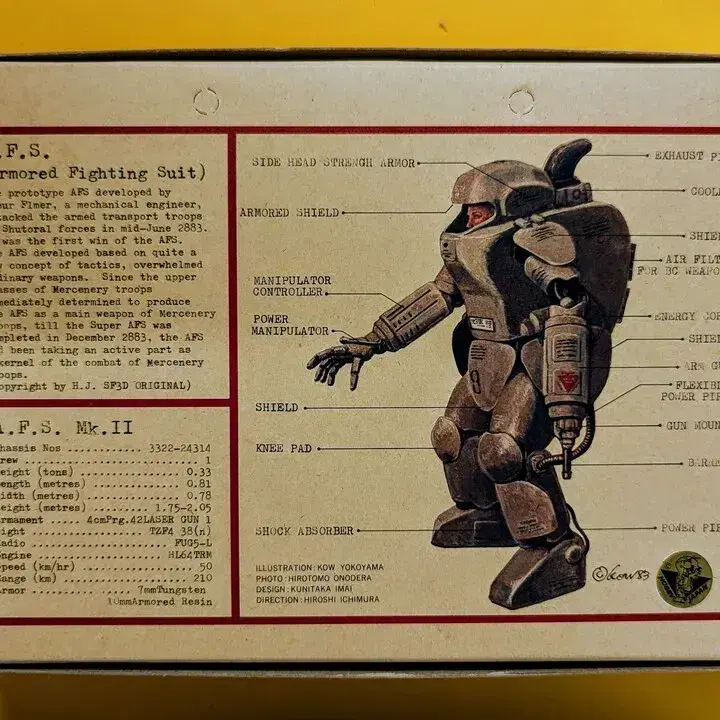 .F.S.
rmored Fighting Suit)
prototype AFS developed by
ur Flmer, a mechanical engineer,
tacked the armed transport troops
Shutoral forces in mid-June 2883.
was the first win of the AFS.
AFS developed based on quite a
concept of tactics, overwhelmed
dinary weapons. Since the upper
asses of Mercenery troops
mediately determined to produce
AFS as a main weapon of Mercenery
oops, till the Super AFS was
mpleted in December 2883, the AFS
been taking an active part as
kernel of the combat of Mercenery
oops.
opyright by H.J. SF3D ORIGINAL)
A.F.S. Mk.II
hassis Nos ............. 3322-24314
rew ........................... 1
eight (tons) ................ 0.33
ength (metres) .............. 0.81
idth (metres) ............... 0.78
eight (metres) ......... 1.75-2.05
rmament ..... 4cmPrg.42LASER GUN 1
ight ................. TZF4 38(n)
adio ...................... FUG5-L
ngine .................... HL64TRM
peed (km/hr) .................. 50
ange (km) .................... 210
rmor ................ 7mmTungsten
10mmArmored Resin
SIDE HEAD STRENGH ARMOR
ARMORED SHIELD
MANIPULATOR
CONTROLLER
POWER
MANIPULATOR
SHIELD
KNEE PAD
SHOCK ABSORBER
EXHAUST PI
COOL
SHIE
AIR FILT
FOR BC WEAPO
ENERGY COR
SHIEL
ARM GU
FLEXIB
POWER PIP
GUN MOUN
BARR
POWER PIP
ILLUSTRATION: KOW YOKOYAMA
PHOTO: HIROTOMO ONODERA
DESIGN: KUNITAKA IMAI
DIRECTION: HIROSHI ICHIMURA
©kow83